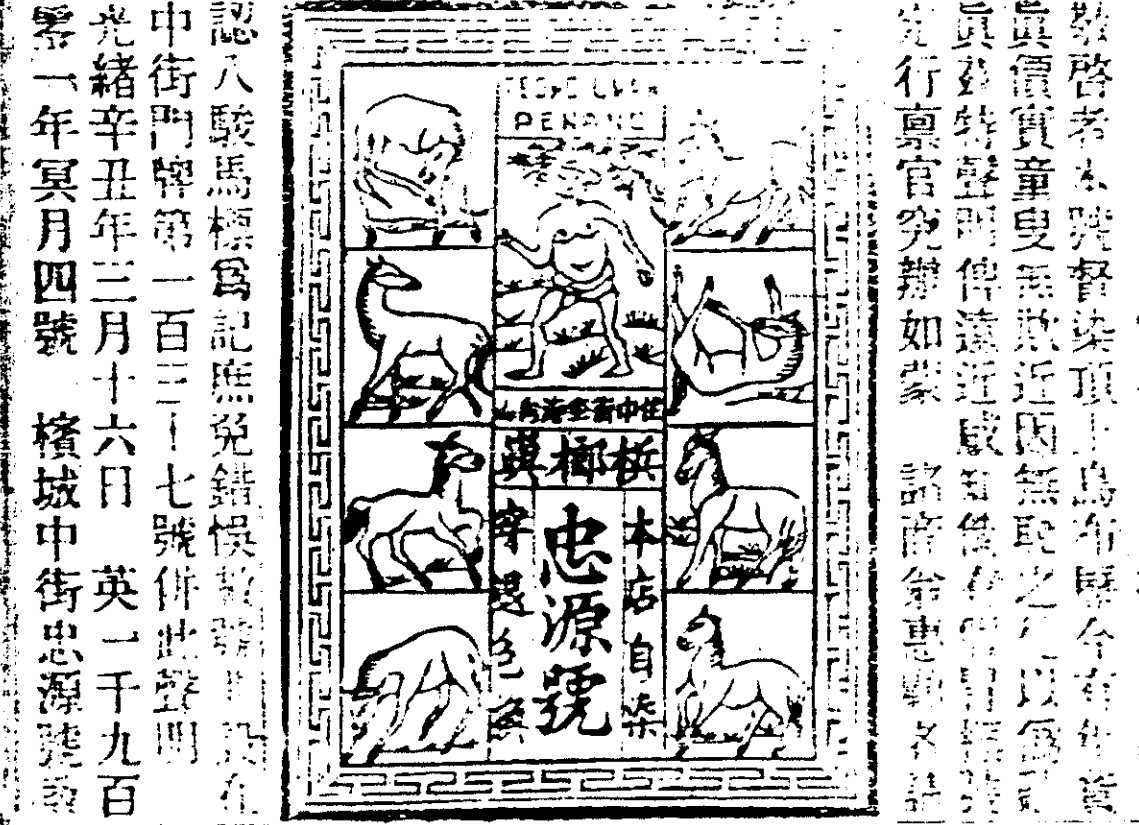 敬啓者本號督染頂上烏布歷今有年貨
眞價實童叟無欺近因無恥之人以僞
眞茲特聲明俾遠近咸知倘有假冒標號
先行禀官究辦如蒙 諸商翁惠顧者請
PENANG
住中街坐海向山
檳榔嶼
本店自染
忠源號
穿退包換
認八駿馬標爲記庶免錯悞敝號開設在
中街門牌第一百三十七號併此聲明
光緒辛丑年三月十六日 英一千九百
零一年冥月四號 檳城中街忠源號啟